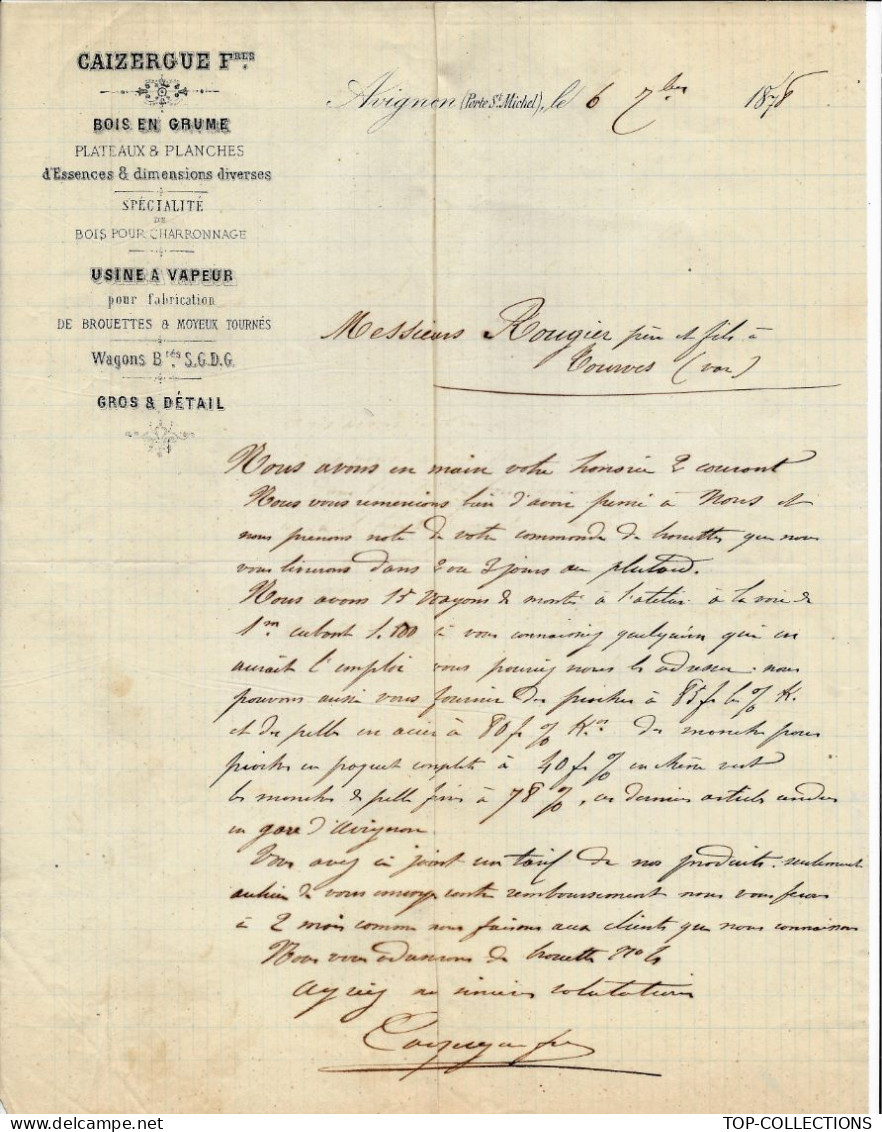 CAIZERGUE Fres
BOIS EN GRUME
PLATEAUX & PLANCHES
d'Essences & dimensions diverses
SPÉCIALITÉ
DE
BOIS POUR CHARRONNAGE
USINE A VAPEUR
pour fabrication
DE BROUETTES & MOYEUX TOURNÉS
Wagons Btés S.G.D.G.
GROS & DÉTAIL
Avignon (Porte St Michel), le 6 7bre 1878
Messieurs Rougier père et fils à
Tourves (var)
Nous avons en main votre honorée 2 courant
Nous vous remercions bien d'avoir pensé à Nous et
nous prenons note de votre commande de brouettes que nous
vous livrerons dans 2 ou 3 jours au plutard.
Nous avons 15 wagons de monté à l'atelier à la voie de
1m cubant 1.500 si vous connaissiez quelqu'un qui en
aurait l'emploi vous pouriez nous les adresser. nous
pouvons aussi vous fournir des pioches à 85 fr les % K.
et des pelles en acier à 80 fr % K. des manches pour
pioches en paquet complets à 40 fr % en chêne vert
les manches de pelle à 78 %, ces derniers articles rendus
en gare d'Avignon.
Vous avez ci joint un tarif de nos produits. seulement
au lieu de vous envoyer contre remboursement nous vous ferons
à 2 mois comme nous faisons aux clients que nous connaissons
Nous vous adresserons des brouettes
agréez nos sincères salutations
Caizergue fres
TOP-COLLECTIONS